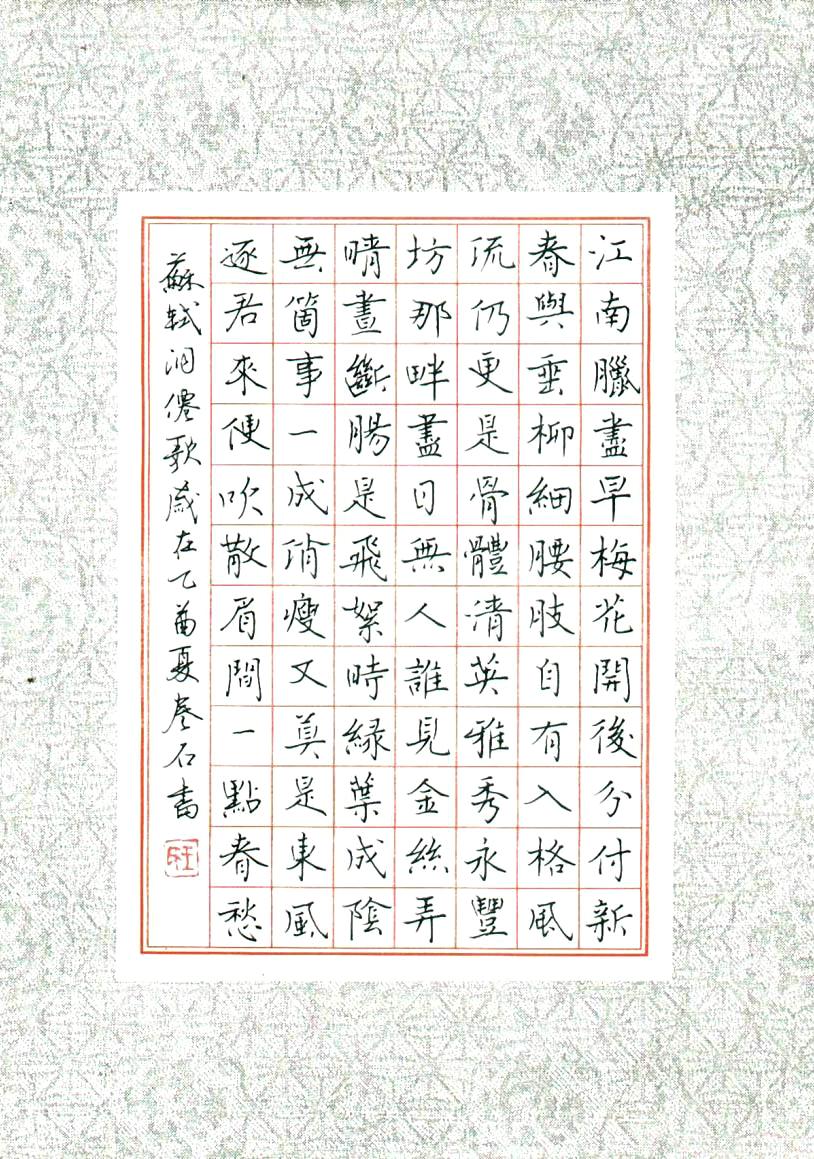 江南臘盡早梅花開後分付新
春與垂柳細腰肢自有入格風
流仍更是骨體清英雅秀永豐
坊那畔盡日無人誰見金絲弄
晴晝斷腸是飛絮時緑葉成陰
無箇事一成消瘦又莫是東風
逐君來便吹散眉間一點春愁
蘇軾洞僊歌歲在乙酉夏卷石書